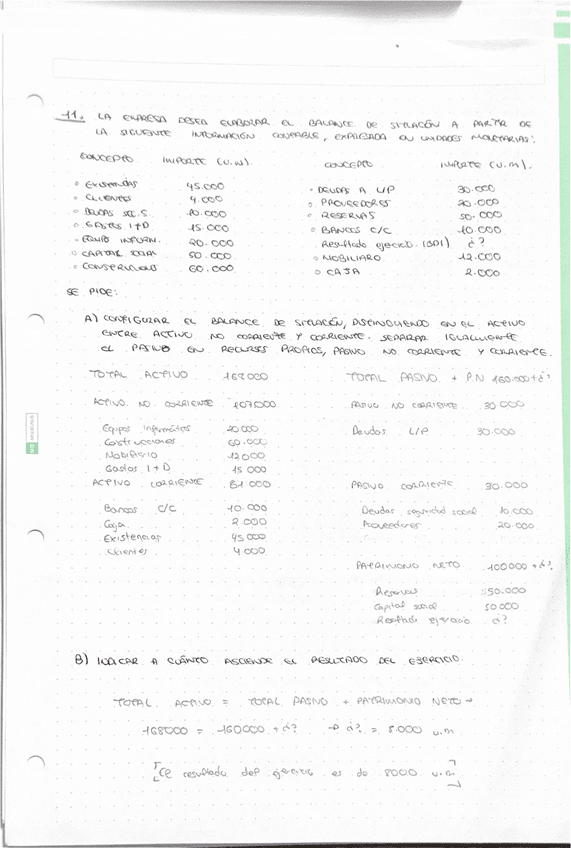 11. LA EMPRESA DESEA ELABORAR EL BALANCE DE SITUACIÓN A PARTIR DE
LA SIGUIENTE INFORMACIÓN CONTABLE, EXPRESADA EN UNIDADES MONETARIAS:
CONCEPTO IMPORTE (U.M) CONCEPTO IMPORTE (U.M).
EXISTENCIAS 45.000 DEUDAS A L/P 30.000
CLIENTES 4.000 PROVEEDORES 20.000
DEUDAS SEG.S. 10.000 RESERVAS 50.000
GASTOS I+D 15.000 BANCOS C/C 10.000
EQUIPO INFORM. 20.000 Resultado ejercicio (301) ¿?
CAPITAL SOCIAL 50.000 MOBILIARIO 12.000
CONSTRUCCIONES 60.000 CAJA 2.000
SE PIDE:
A) CONFIGURAR EL BALANCE DE SITUACIÓN, DISTINGUIENDO EN EL ACTIVO
ENTRE ACTIVO NO CORRIENTE Y CORRIENTE. SEPARAR IGUALMENTE
EL PASIVO EN RECURSOS PROPIOS, PASIVO NO CORRIENTE Y CORRIENTE.
TOTAL ACTIVO 168000 TOTAL PASIVO + P.N 160.000+¿?
ACTIVO NO CORRIENTE 107000 PASIVO NO CORRIENTE 30.000
Equipos informáticos 20000 Deudas L/P 30.000
Construcciones 60.000
Mobiliario 12000
Gastos I+D 15000
ACTIVO CORRIENTE 61000 PASIVO CORRIENTE 30.000
Bancos C/C 10.000 Deudas seguridad social 10.000
Caja 2.000 Proveedores 20.000
Existencias 45.000
Clientes 4.000
PATRIMONIO NETO 100000 + ¿?
Reservas 50.000
Capital social 50000
Resultado ejercicio ¿?
B) INDICAR A CUÁNTO ASCIENDE EL RESULTADO DEL EJERCICIO.
TOTAL ACTIVO = TOTAL PASIVO + PATRIMONIO NETO →
168000 = 160000 + ¿? → ¿? = 8.000 u.m
El resultado del ejercicio es de 8000 u.m